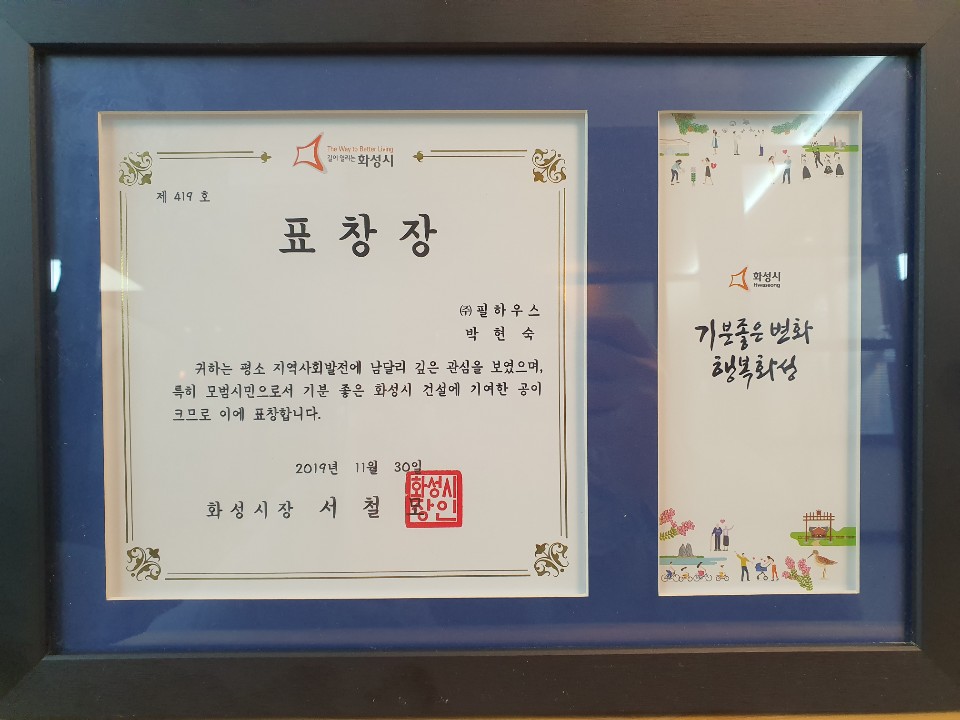 The Way to Better Living
길이 열리는 화성시
제 419 호
표 창 장
㈜필하우스
박 현 숙
귀하는 평소 지역사회발전에 남달리 깊은 관심을 보였으며,
특히 모범시민으로서 기분 좋은 화성시 건설에 기여한 공이
크므로 이에 표창합니다.
2019년 11월 30일
화성시장 서 철 모
화성시
장인
화성시
Hwaseong
기분좋은 변화
행복화성